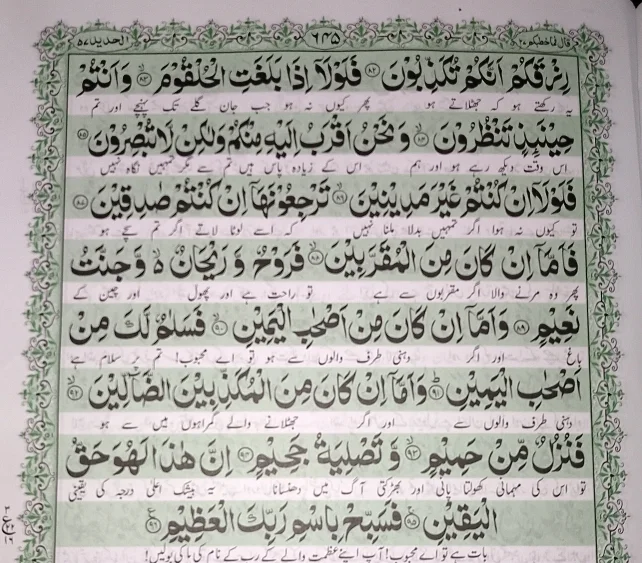 قال فما خطبكم ٢٧ ٦٤٥ الحديد ٥٧
رِزْقَكُمْ اَنَّكُمْ تُكَذِّبُوْنَ ﴿۸۲﴾ فَلَوْلَاۤ اِذَا بَلَغَتِ الْحُلْقُوْمَ ﴿۸۳﴾ وَاَنْتُمْ
یہ رکھتے ہو کہ جھٹلاتے ہو پھر کیوں نہ ہو جب جان گلے تک پہنچے اور تم
حِیْنَىِٕذٍ تَنْظُرُوْنَ ﴿۸۴﴾ وَ نَحْنُ اَقْرَبُ اِلَیْهِ مِنْكُمْ وَلٰكِنْ لَّا تُبْصِرُوْنَ ﴿۸۵﴾
اس وقت دیکھ رہے ہو اور ہم اس کے زیادہ پاس ہیں تم سے مگر تمہیں نگاہ نہیں
فَلَوْلَاۤ اِنْ كُنْتُمْ غَیْرَ مَدِیْنِیْنَ ﴿۸۶﴾ تَرْجِعُوْنَهَاۤ اِنْ كُنْتُمْ صٰدِقِیْنَ ﴿۸۷﴾
تو کیوں نہ ہوا اگر تمہیں بدلا ملنا نہیں کہ اسے لوٹا لاتے اگر تم سچے ہو
فَاَمَّاۤ اِنْ كَانَ مِنَ الْمُقَرَّبِیْنَ ﴿۸۸﴾ فَرَوْحٌ وَّ رَیْحَانٌ ۙ وَّ جَنَّتُ
پھر وہ مرنے والا اگر مقربوں سے ہے تو راحت ہے اور پھول اور چین کے
نَعِیْمٍ ﴿۸۹﴾ وَ اَمَّاۤ اِنْ كَانَ مِنْ اَصْحٰبِ الْیَمِیْنِ ﴿۹۰﴾ فَسَلٰمٌ لَّكَ مِنْ
باغ اور اگر دہنی طرف والوں سے ہو تو اے محبوب! تم پر سلام ہے
اَصْحٰبِ الْیَمِیْنِ ﴿۹۱﴾ وَ اَمَّاۤ اِنْ كَانَ مِنَ الْمُكَذِّبِیْنَ الضَّآلِّیْنَ ﴿۹۲﴾
دہنی طرف والوں سے اور اگر جھٹلانے والے گمراہوں میں سے ہو
فَنُزُلٌ مِّنْ حَمِیْمٍ ﴿۹۳﴾ وَّ تَصْلِیَةُ جَحِیْمٍ ﴿۹۴﴾ اِنَّ هٰذَا لَهُوَ حَقُّ
تو اس کی مہمانی کھولتا پانی اور بھڑکتی آگ میں دھنسانا یہ بیشک اعلیٰ درجہ کی یقینی
الْیَقِیْنِ ﴿۹۵﴾ فَسَبِّحْ بِاسْمِ رَبِّكَ الْعَظِیْمِ ﴿۹۶﴾
بات ہے تو اے محبوب! آپ اپنے عظمت والے کے رب کے نام کی پاکی بولیں!